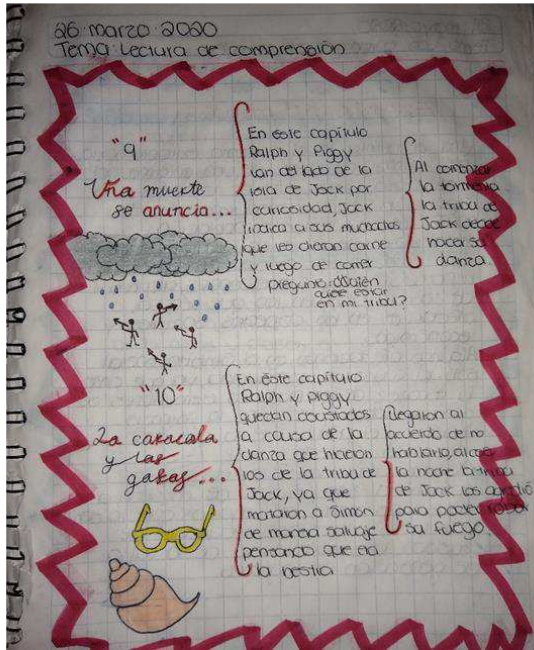 26 marzo 2020
Tema: Lectura de comprensión
"9"
Una muerte
se anuncia...
En este capítulo
Ralph y Piggy
van del lado de la
isla de Jack por
curiosidad, Jock
indica a sus muchachos
que les dieran carne
y luego de comer
pregunto: ¿Quién
quiere estar
en mi tribu?
Al comenzar
la tormenta
la tribu de
Jack decide
hacer su
danza
"10"
La caracola
y las
gafas...
En este capítulo
Ralph y Piggy
quedan asustados
a causa de la
danza que hicieron
los de la tribu de
Jack, ya que
mataron a Simon
de manera salvaje
pensando que era
la bestia
Llegaron al
acuerdo de no
hablarlo, al caer
la noche la tribu
de Jack los agredió
para poder robar
su fuego.